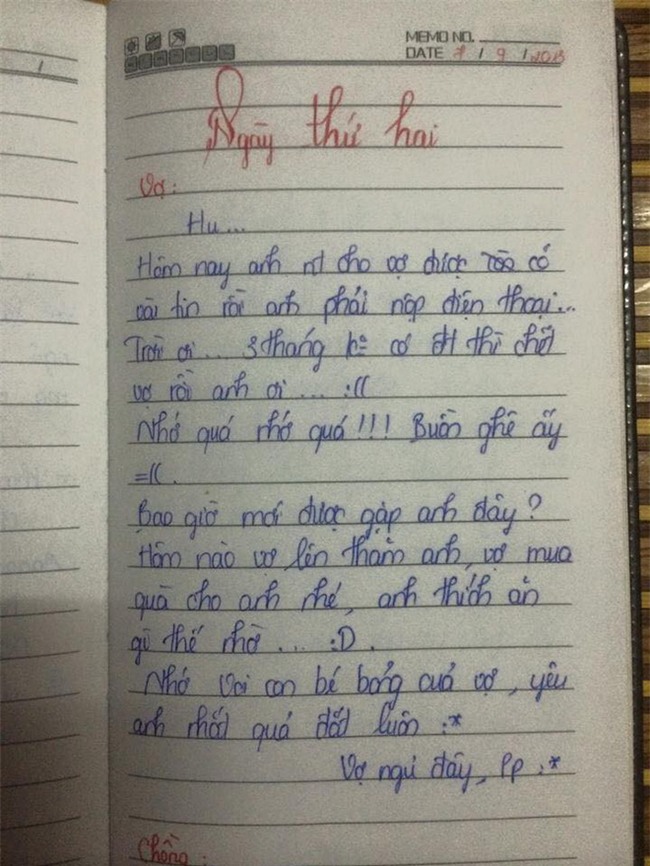 MEMO NO.
DATE 7 / 9 / 2013
Ngày thứ hai
Vợ:
Hu...
Hôm nay anh nt cho vợ được có
vài tin rồi anh phải nộp điện thoại...
Trời ơi... 3 tháng k có đt thì chết
vợ rồi anh ơi... :((
Nhớ quá nhớ quá!!! Buồn ghê ấy
=((.
Bao giờ mới được gặp anh đây?
Hôm nào vợ lên thăm anh, vợ mua
quà cho anh nhé, anh thích ăn
gì thế nhờ... :D.
Nhớ voi con bé bỏng của vợ, yêu
anh nhất quả đất luôn :*
Vợ ngủ đây, Pp :*
Chồng: